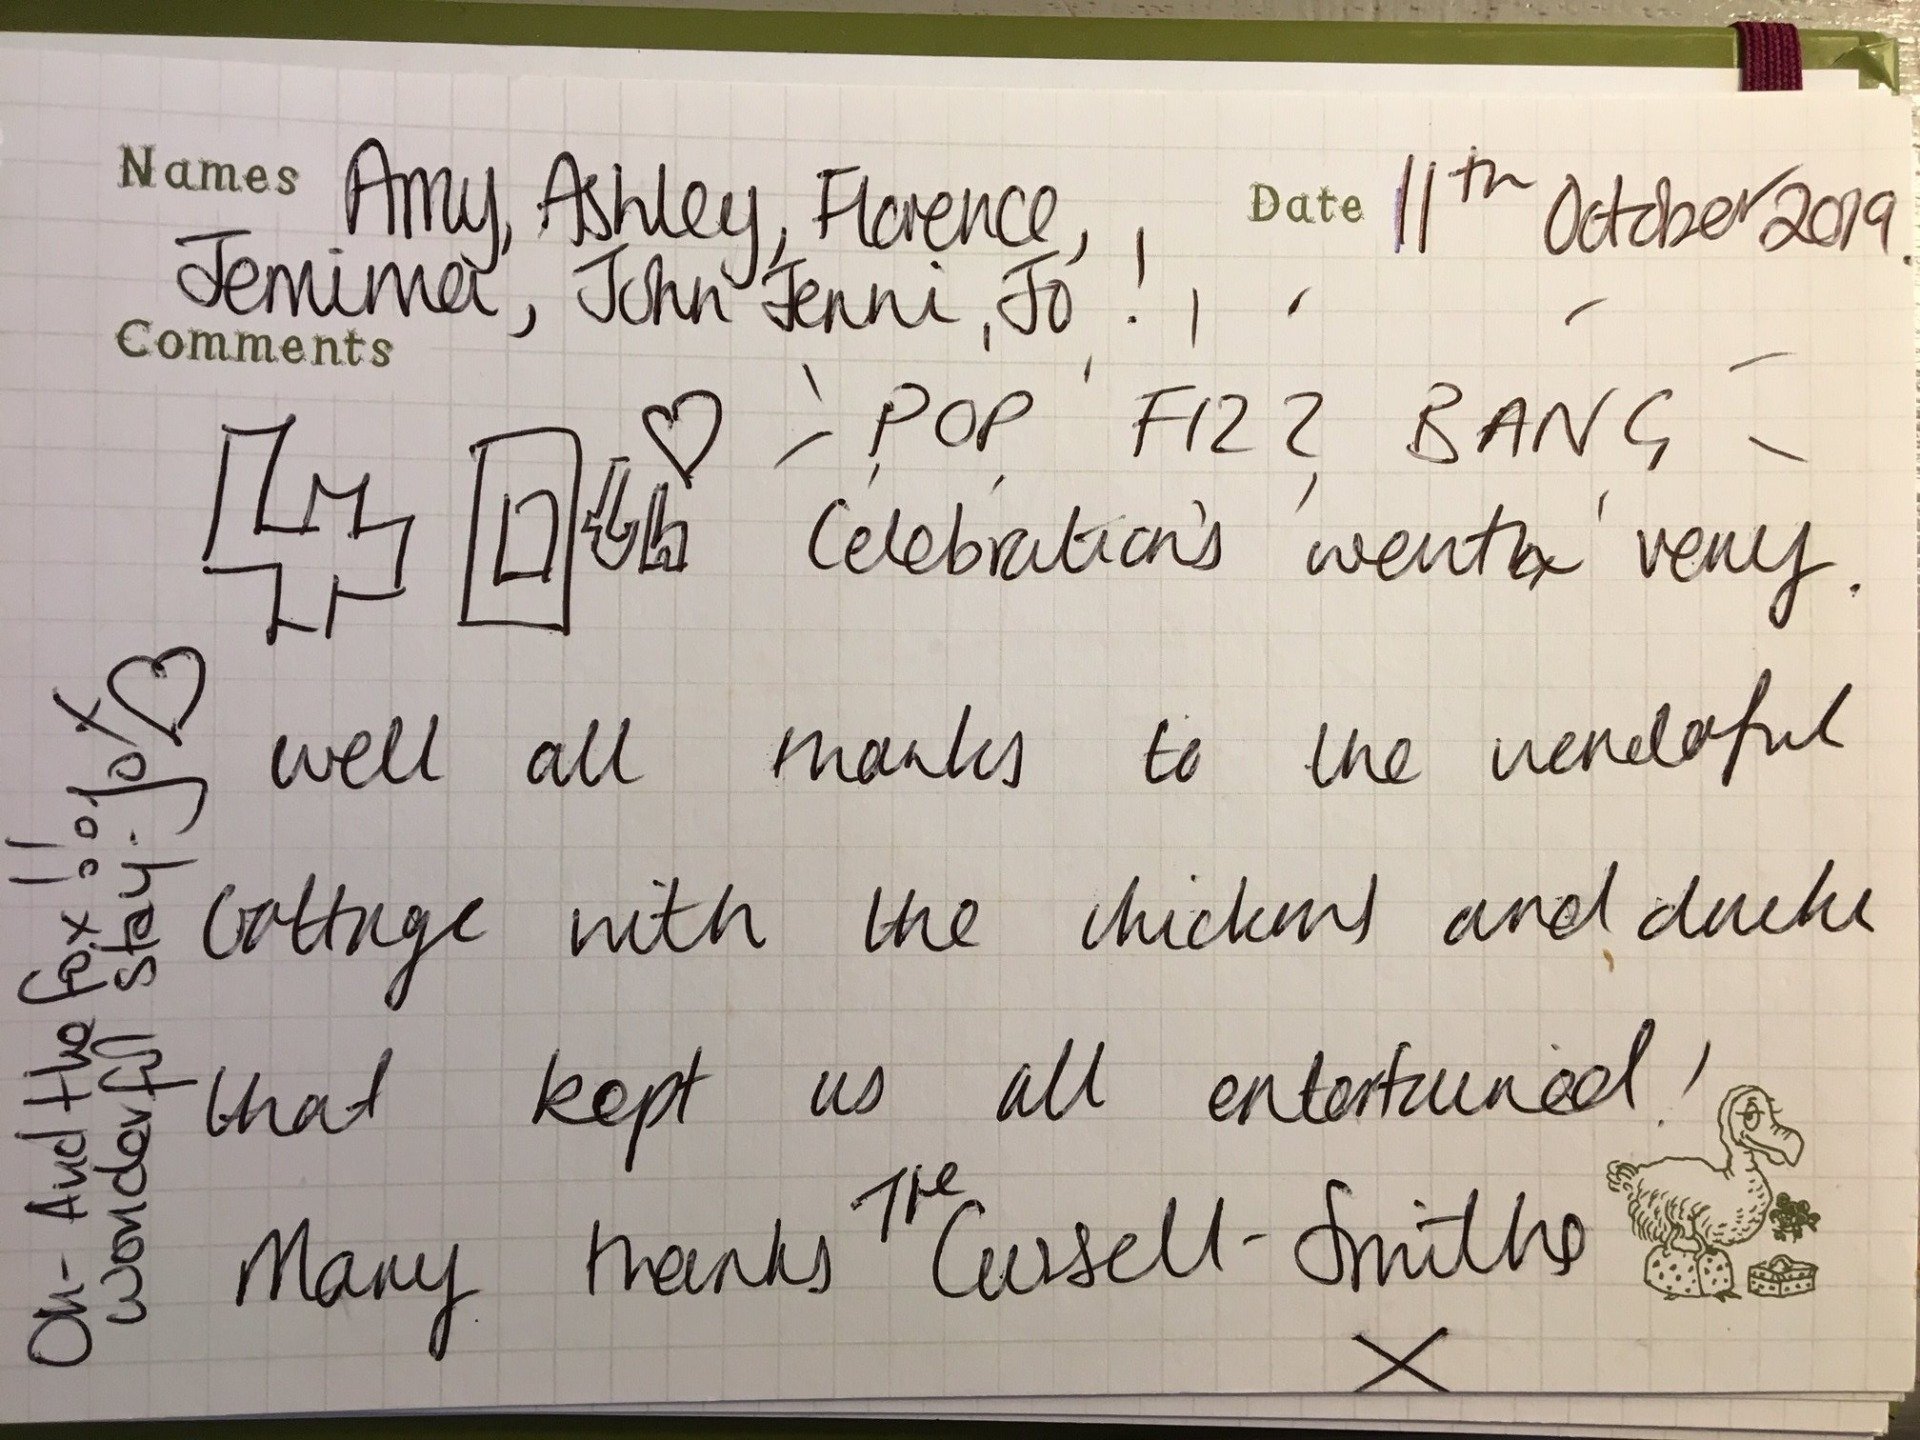 Names Amy, Ashley, Florence, Date 11th October 2019.
Jemima, John Jenni, Jo!
Comments
40th POP FIZZ BANG
Celebration's went very
well all thanks to the
Cottage with the chickens and ducks
that kept us all entertained!
Many thanks The Smiths
X
Oh- And the fox!!
wonderful stay. Jo X